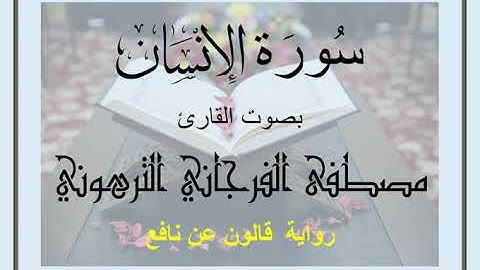 سُورَة الإِنْسَان
بصوت القارئ
مصطفى الفرجاني الترهوني
رواية قالون عن نافع